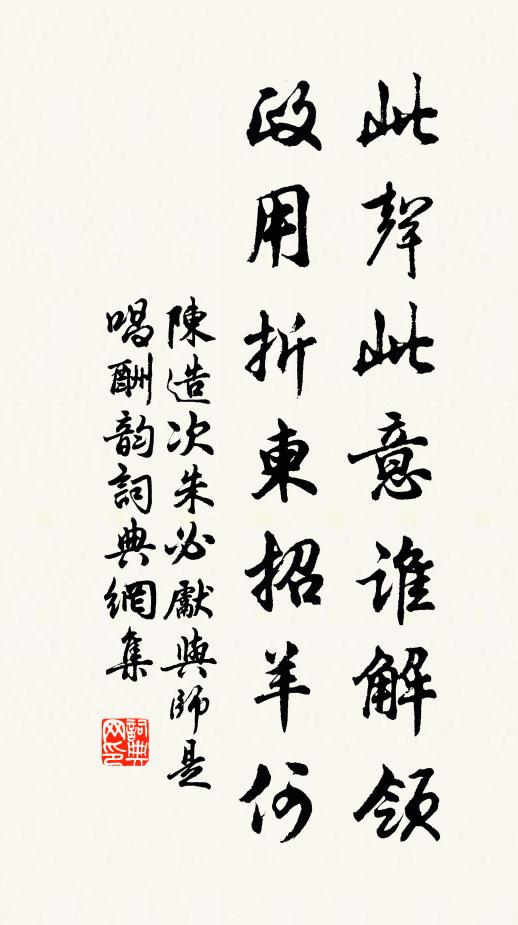 此聲此意誰解領
政用折東招羊何
陳造次朱必獻與師是
唱酬韵詞典網集
詞典
网印